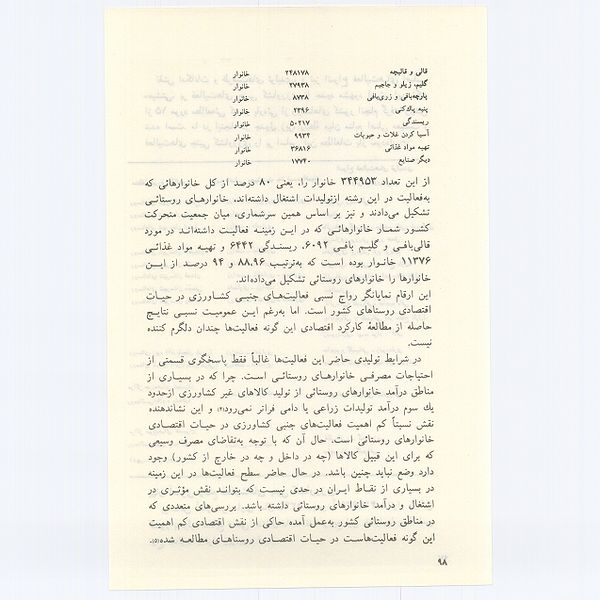 قالی و قالیچه ۲۴۸۱۷۸ خانوار
گلیم، زیلو و جاجیم ۲۷۹۳۸ خانوار
پارچه‌بافی و زری‌بافی ۸۷۳۸ خانوار
پنبه پاک‌کنی ۲۳۹۶ خانوار
ریسندگی ۵۰۲۱۷ خانوار
آسیا کردن غلات و حبوبات ۹۹۳۴ خانوار
تهیه مواد غذائی ۳۶۸۱۶ خانوار
دیگر صنایع ۱۷۷۴۰ خانوار
از این تعداد ۳۴۴۹۵۳ خانوار را، یعنی ۸۰ درصد از کل خانوارهائی که
به‌فعالیت در این رشته ازتولیدات اشتغال داشته‌اند، خانوارهای روستائی
تشکیل می‌دادند و نیز بر اساس همین سرشماری، میان جمعیت متحرکت
کشور شمار خانوارهائی که در این زمینه فعالیت داشته‌اند در مورد
قالی‌بافی و گلیم بافی ۶۰۹۲، ریسندگی ۶۴۴۲ و تهیه مواد غذائی
۱۱۳۷۶ خانوار بوده است که به‌ترتیب ۸۸،۹۶ و ۹۴ درصد از این
خانوارها را خانوارهای روستائی تشکیل می‌داده‌اند.
این ارقام نمایانگر رواج نسبی فعالیت‌های جنبی کشاورزی در حیات
اقتصادی روستاهای کشور است. اما به‌رغم این عمومیت نسبی نتایج
حاصله از مطالعهٔ کارکرد اقتصادی این گونه فعالیت‌ها چندان دلگرم کننده
نیست.
در شرایط تولیدی حاضر این فعالیت‌ها غالباً فقط پاسخگوی قسمتی از
احتیاجات مصرفی خانوارهای روستائی است. چرا که در بسیاری از
مناطق درآمد خانوارهای روستائی از تولید کالاهای غیر کشاورزی ازحدود
یك سوم درآمد تولیدات زراعی یا دامی فراتر نمی‌رود(۴) و این نشاندهنده
نقش نسبتاً کم اهمیت فعالیت‌های جنبی کشاورزی در حیات اقتصادی
خانوارهای روستائی است. حال آن که با توجه به‌تقاضای مصرف وسیعی
که برای این قبیل کالاها (چه در داخل و چه در خارج از کشور) وجود
دارد وضع نباید چنین باشد. در حال حاضر سطح فعالیت‌ها در این زمینه
در بسیاری از نقاط ایران در حدی نیست که بتواند نقش مؤثری در
اشتغال و درآمد خانوارهای روستائی داشته باشد. بررسی‌های متعددی که
در مناطق روستائی کشور به‌عمل آمده حاکی از نقش اقتصادی کم اهمیت
این گونه فعالیت‌هاست در حیات اقتصادی روستاهای مطالعه شده(۵).
۹۸